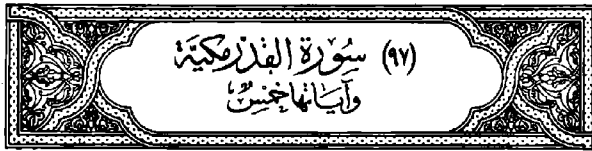 (٩٧) سُورَة القَدْر مَكِيَّة
وَآيَاتهَا خَمْسٌ